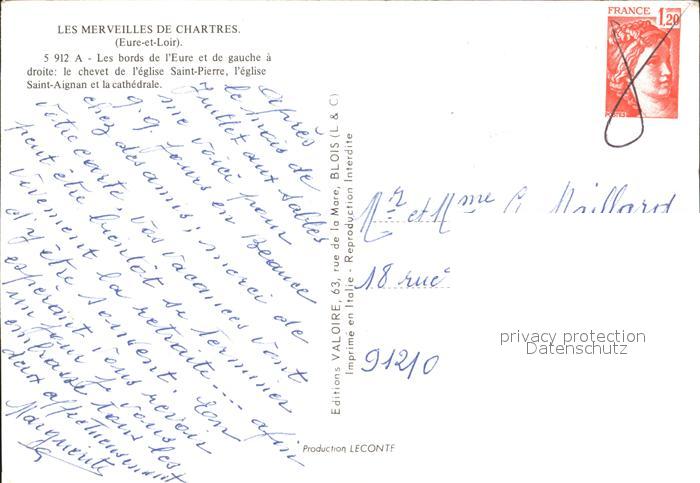 LES MERVEILLES DE CHARTRES.
(Eure-et-Loir).
5 912 A - Les bords de l'Eure et de gauche à
droite: le chevet de l'église Saint-Pierre, l'église
Saint-Aignan et la cathédrale.
Après
le mois de
Juillet aux Sables
me voici pour
q.q. jours en Beauce
chez des amis; merci de
votre carte, vos vacances vont
peut être bientôt se terminer
vivement la retraite... afin
d'y être souvent. En
espérant vous revoir
un jour, je vous
embrasse tous les
deux affectueusement
Marguerite
Editions VALOIRE, 63, rue de la Mare, BLOIS (L & C)
Imprimé en Italie - Reproduction Interdite
Production LECONTE
FRANCE
1,20
POSTES
Mr et Mme G Maillard
18 rue
91210
privacy protection
Datenschutz